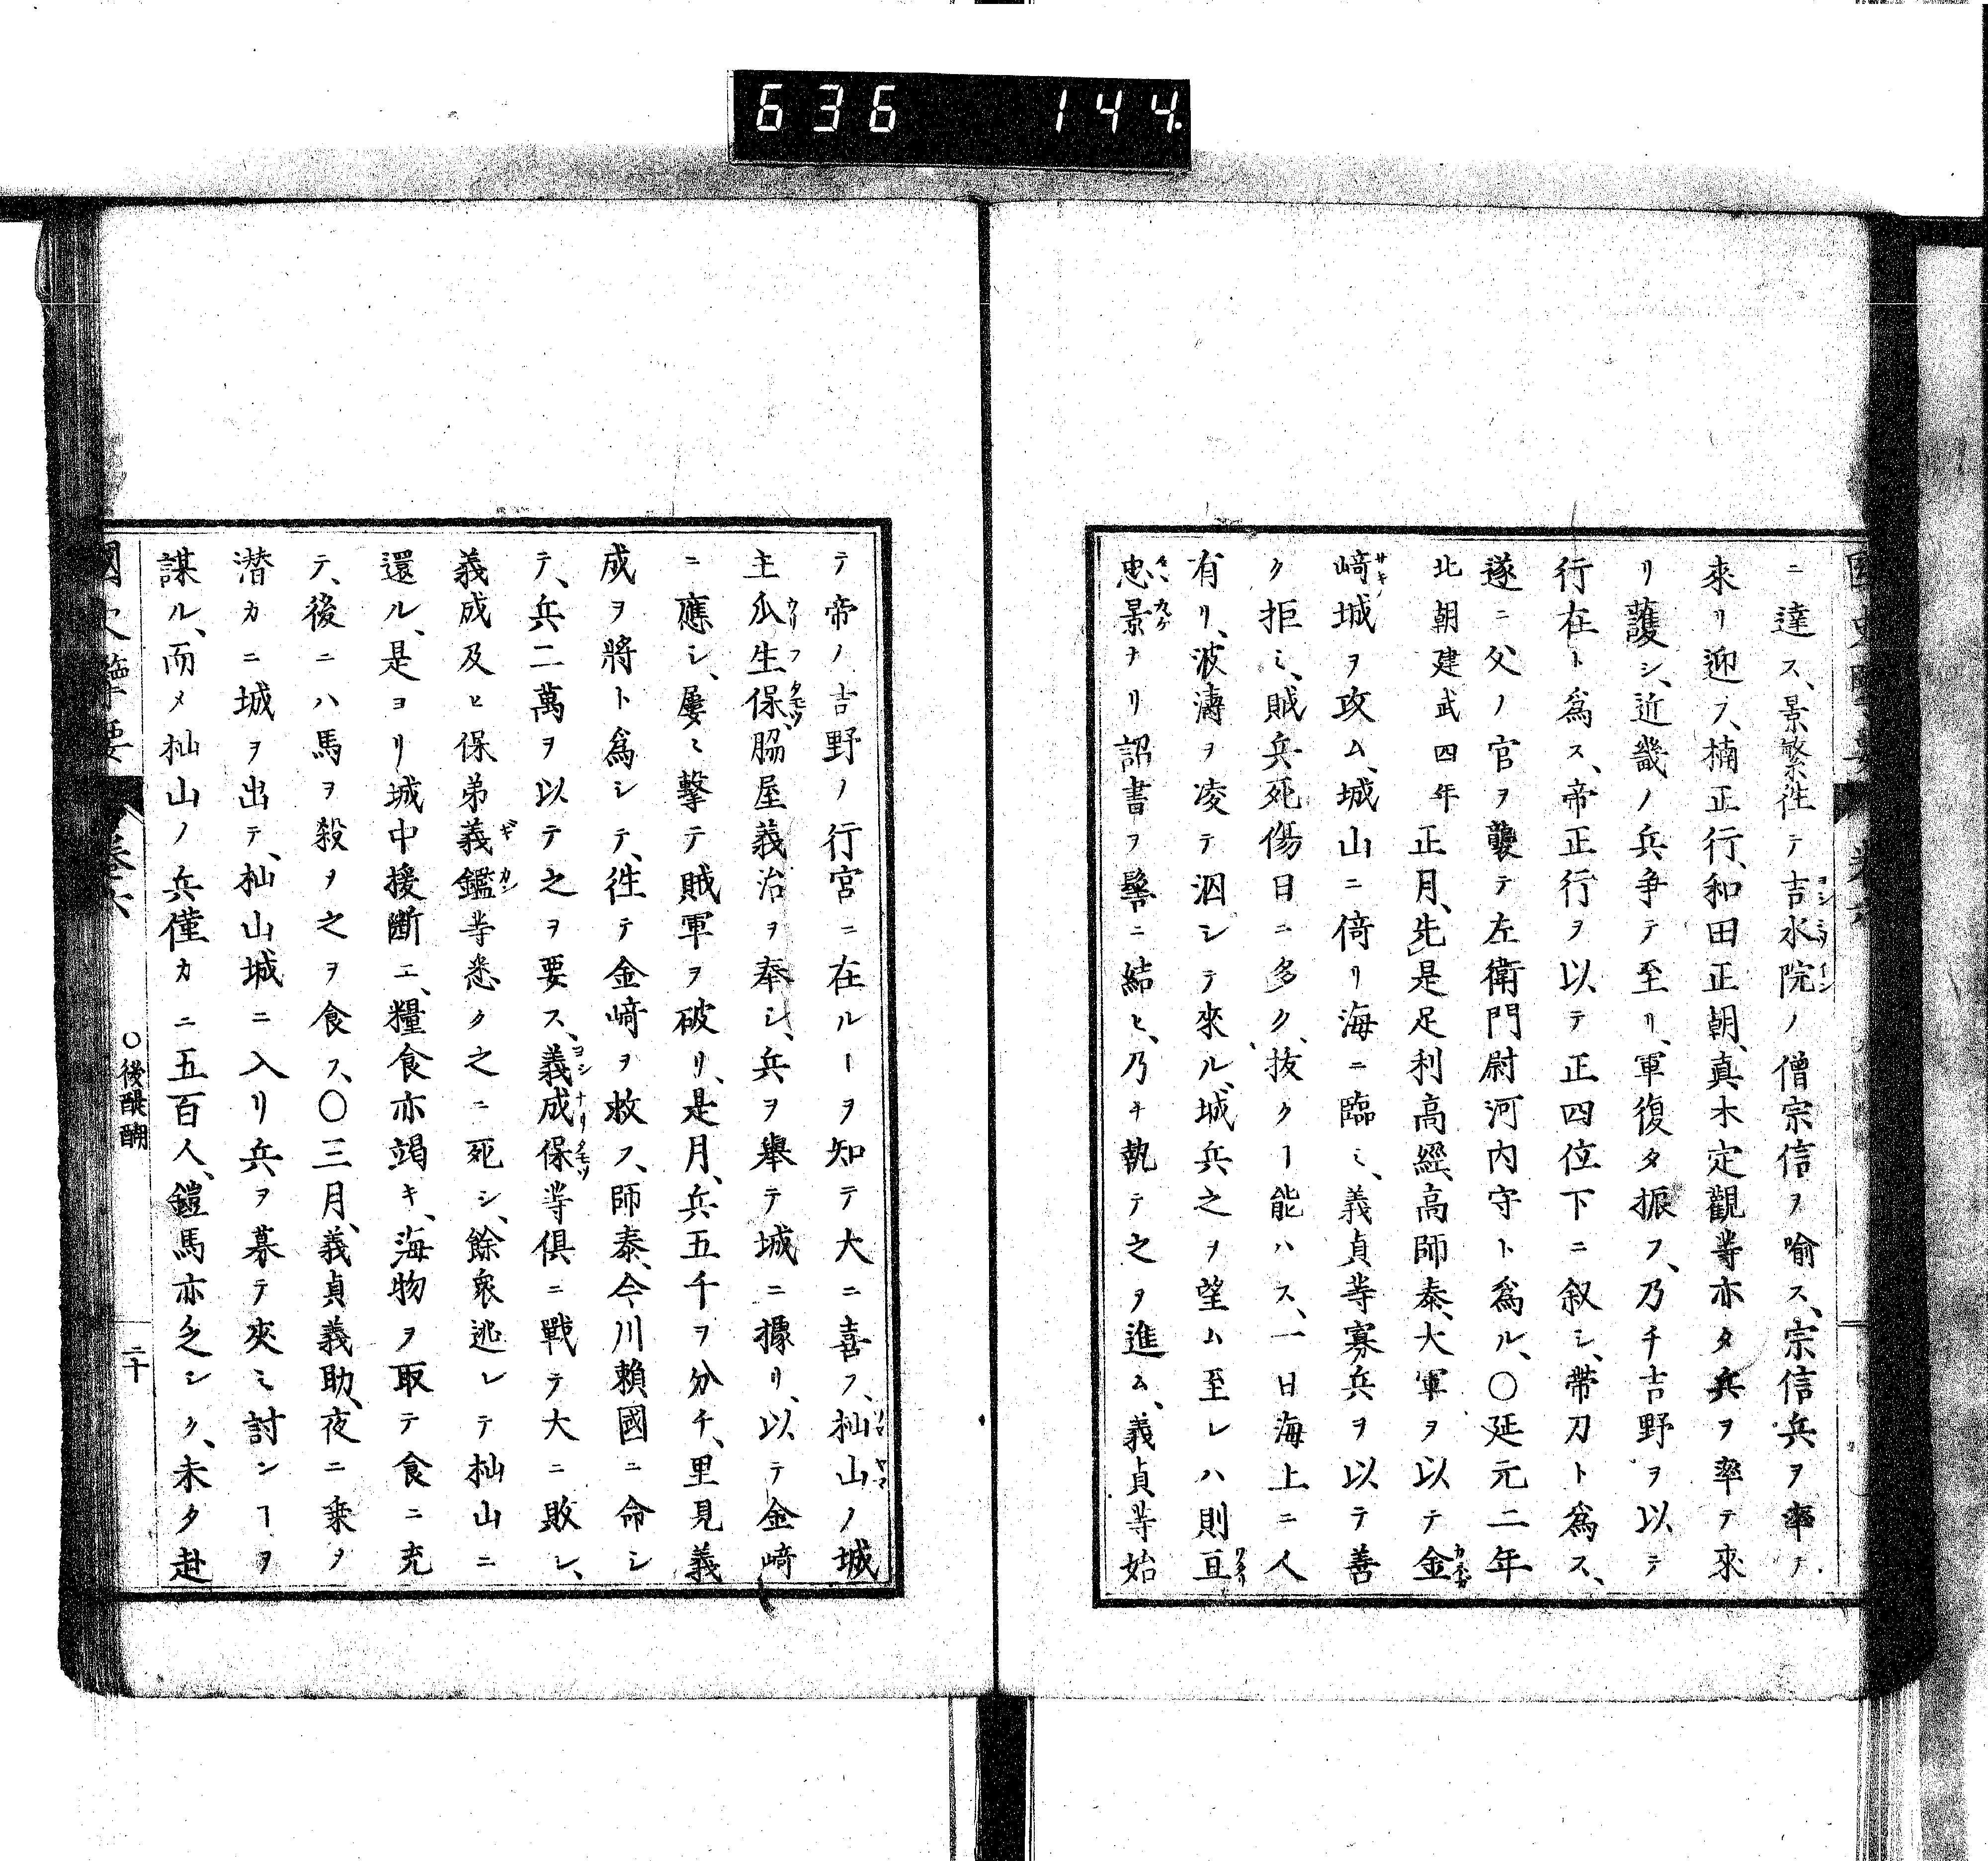 636 144
ニ達ス、景繁徃テ吉水院ノ僧宗信ヲ喻ス、宗信兵ヲ率テ
來リ迎フ、楠正行、和田正朝、真木定觀等亦タ兵ヲ率テ來
リ護シ、近畿ノ兵爭テ至リ、軍復タ振フ、乃チ吉野ヲ以テ
行在ト為ス、帝正行ヲ以テ正四位下ニ叙シ、帶刀ト為ス、
遂ニ父ノ官ヲ襲テ左衛門尉河内守ト為ル、〇延元二年
北朝建武四年正月、先是足利高經、高師泰、大軍ヲ以テ金
﨑城ヲ攻ム、城山ニ倚リ海ニ臨ミ、義貞等寡兵ヲ以テ善
ク拒ミ、賊兵死傷日ニ多ク、抜クヿ能ハス、一日海上ニ人
有リ、波濤ヲ凌テ泅シテ來ル、城兵之ヲ望ム至レハ則亘
忠景ナリ詔書ヲ髻ニ結ヒ、乃チ執テ之ヲ進ム、義貞等始
テ帝ノ吉野ノ行宮ニ在ルヿヲ知テ大ニ喜フ、杣山ノ城
主瓜生保、脇屋義治ヲ奉シ、兵ヲ擧テ城ニ據リ、以テ金﨑
ニ應シ、屢ミ擊テ賊軍ヲ破リ、是月、兵五千ヲ分チ、里見義
成ヲ將ト為シテ、徃テ金﨑ヲ救フ、師泰、今川賴國ニ命シ
テ、兵二萬ヲ以テ之ヲ要ス、義成保等俱ニ戰テ大ニ敗レ、
義成及ヒ保弟義鑑等悉ク之ニ死シ、餘衆逃レテ杣山ニ
還ル、是ヨリ城中援斷エ、糧食亦竭キ、海物ヲ取テ食ニ充
テ、後ニハ馬ヲ殺ヲ之ヲ食ス、〇三月、義貞義助、夜ニ乗ノ
潜カニ城ヲ出テ、杣山城ニ入リ兵ヲ募テ夾ミ討ンヿヲ
謀ル、而メ杣山ノ兵僅カニ五百人、鎧馬亦乏シク、未タ赴
國史擥要 卷六 〇後醍醐 二十